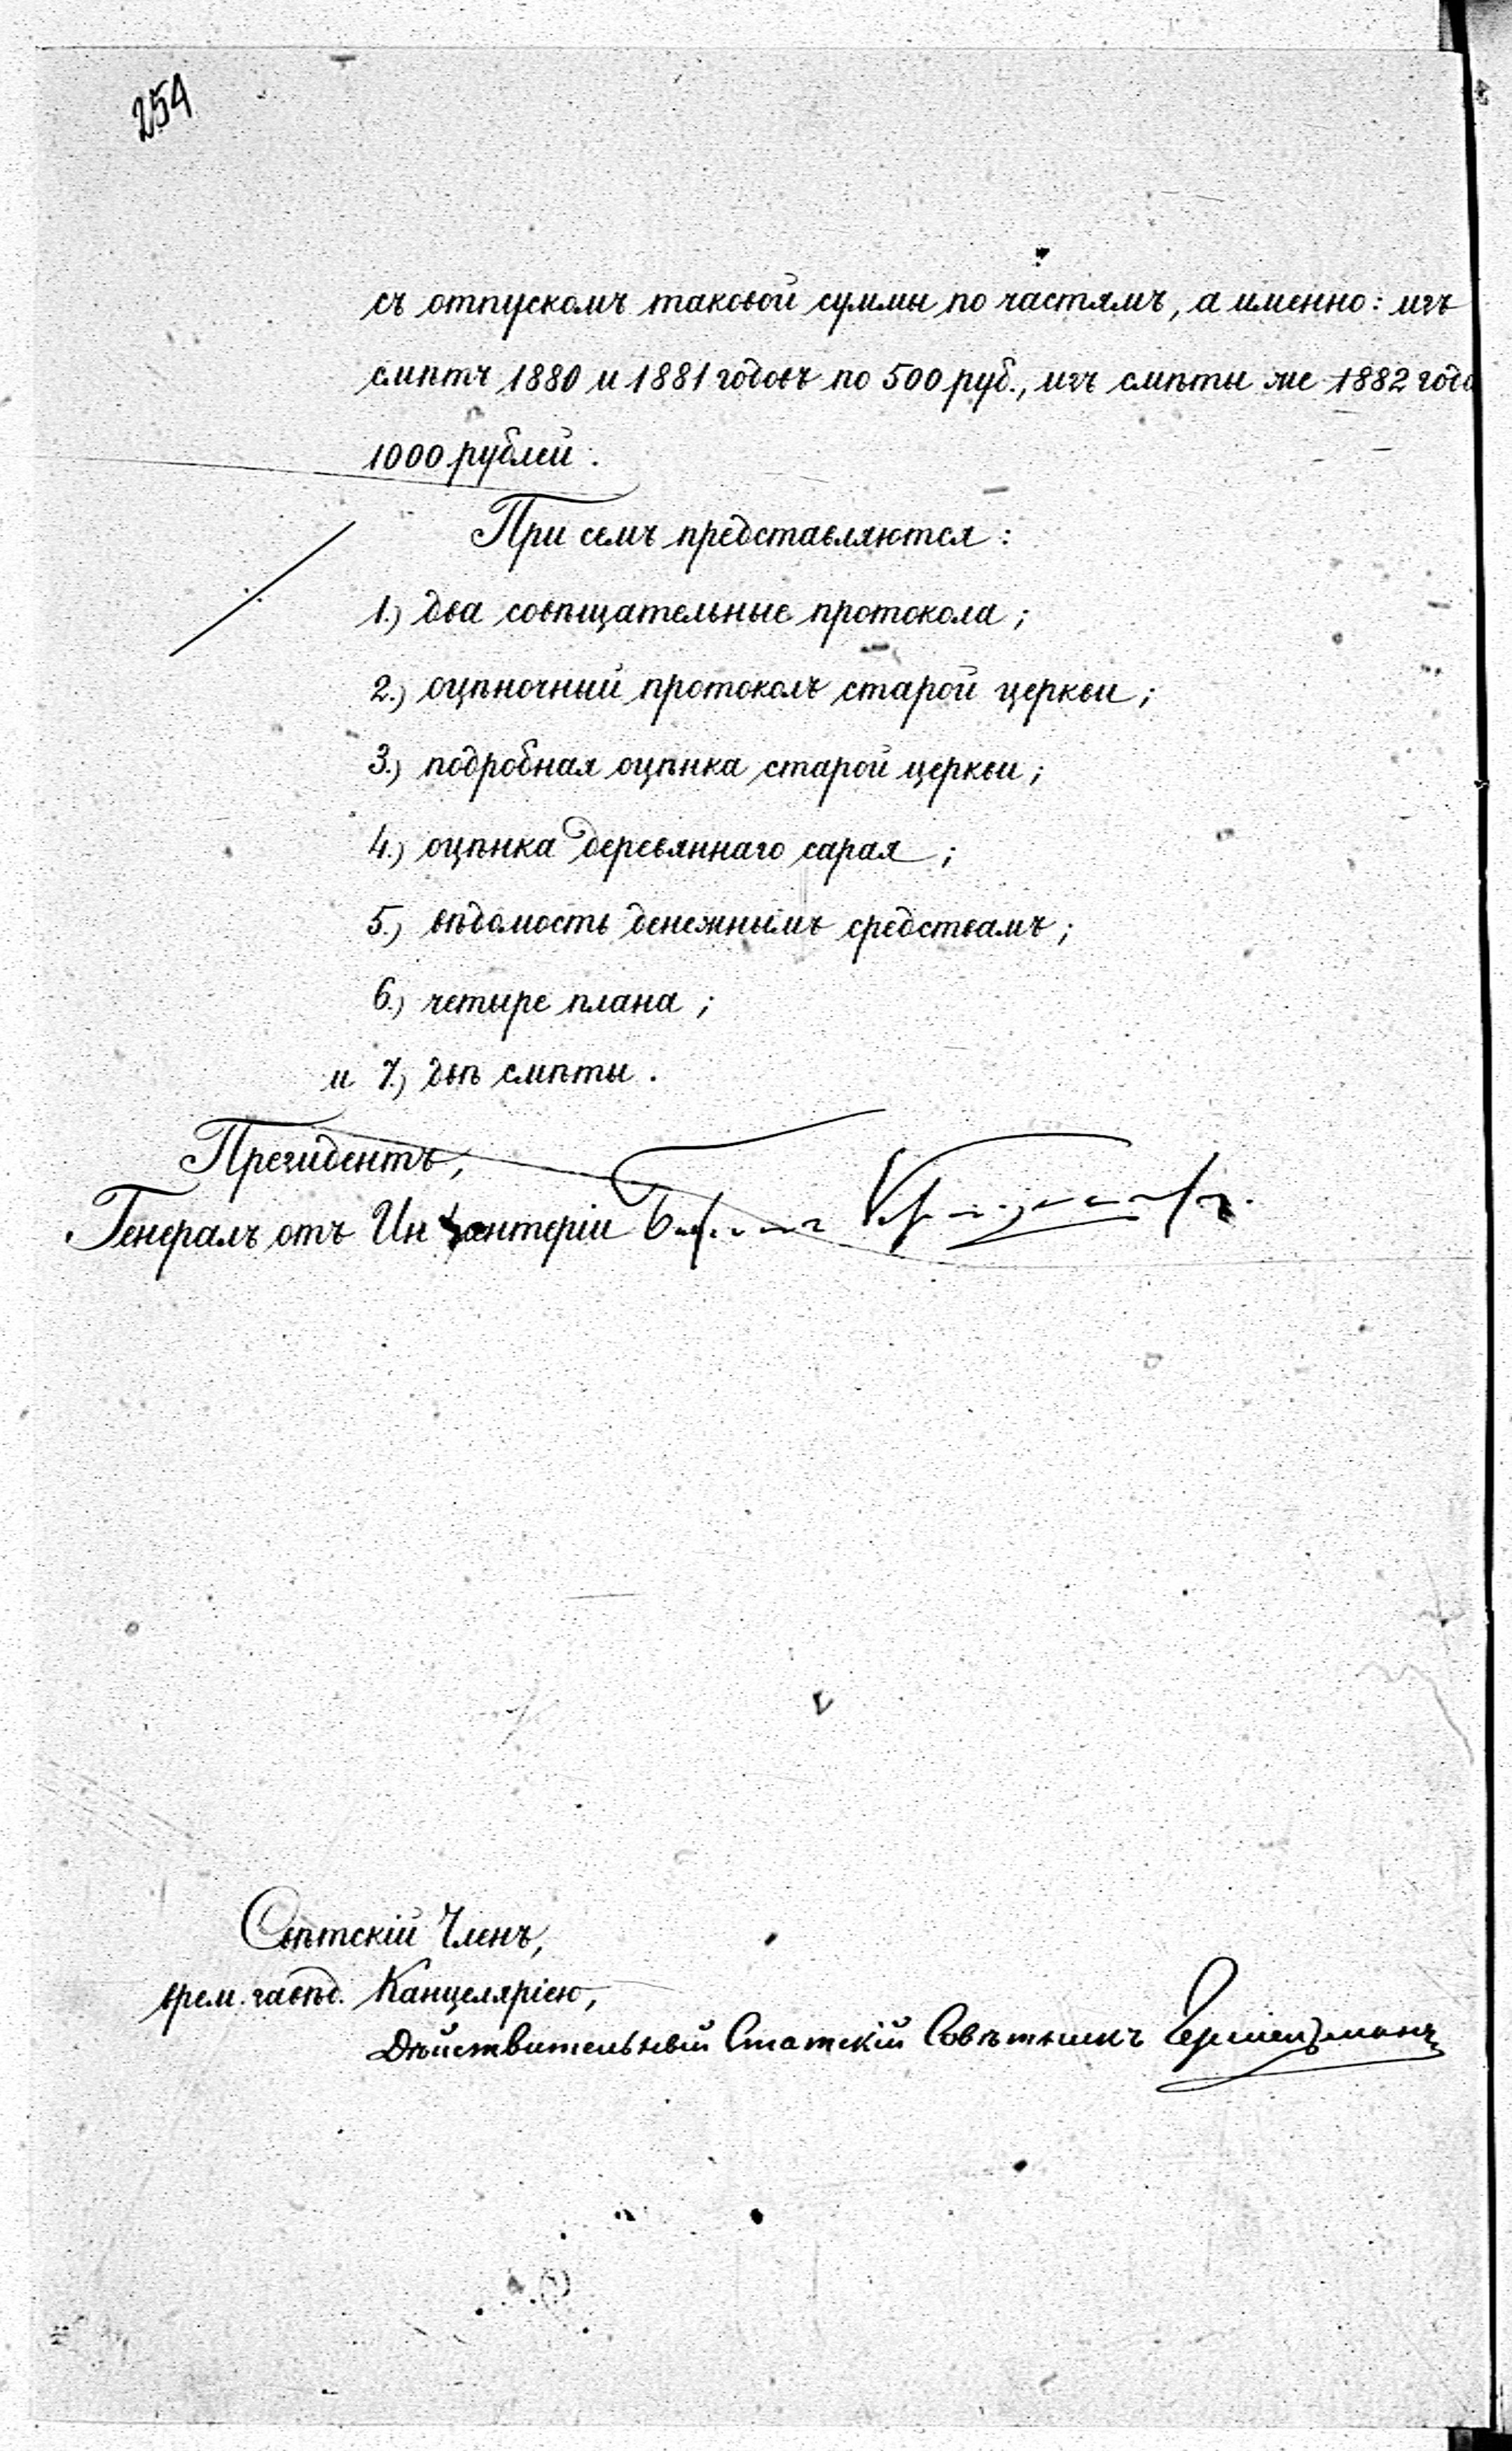 254
съ отпускомъ таковой суммы по частямъ, а именно: изъ
смѣтъ 1880 и 1881 годовъ по 500 руб., изъ смѣты же 1882 года
1000 рублей.
При семъ представляются:
1.) два совѣщательные протокола;
2.) оцѣночный протоколъ старой церкви;
3.) подробная оцѣнка старой церкви;
4.) оцѣнка деревяннаго сарая;
5.) вѣдомость денежнымъ средствамъ;
6.) четыре плана;
и 7.) двѣ смѣты.
Президентъ,
Генералъ отъ Инфантеріи Баронъ
Свѣтскій Членъ,
врем. завѣд. Канцеляріею,
Дѣйствительный Статскій Совѣтникъ